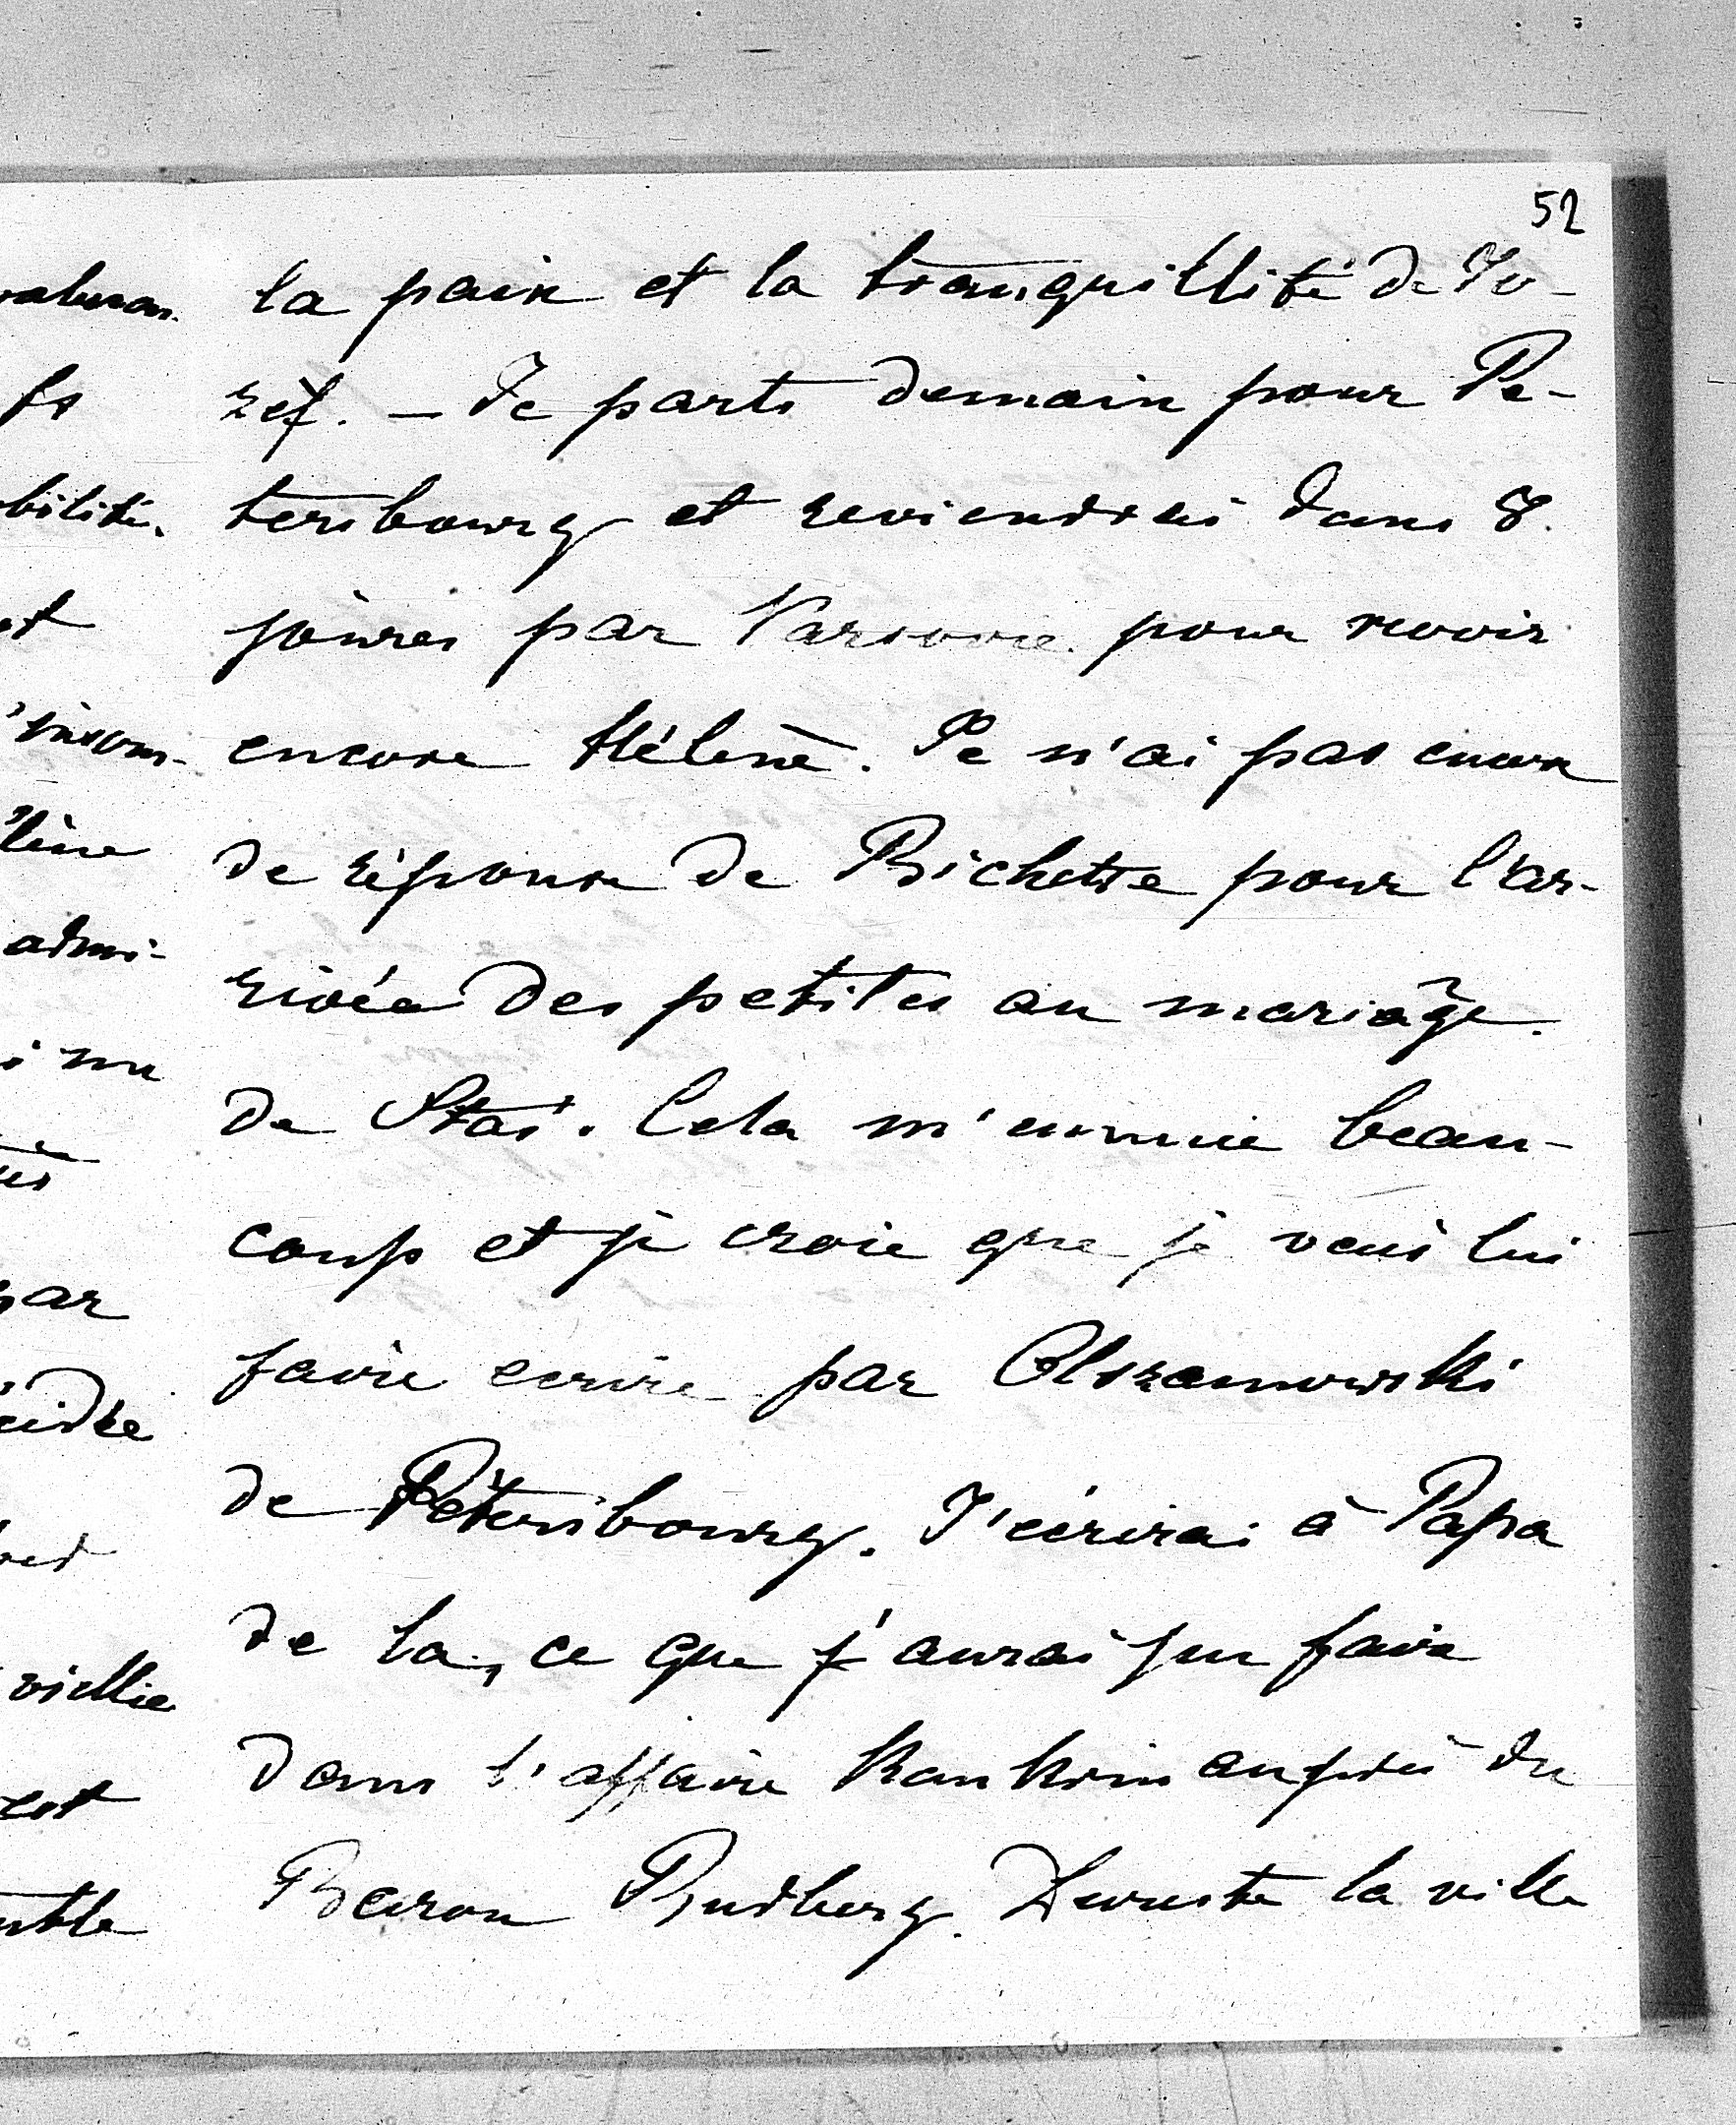 52
la paix et la tranquillité de Jo-
zèf. — Je parts demain pour Pe-
tersbourg et reviendrai dans 8.
jours par Varsovie pour revoir
encore Hélène. Je n'ai pas encore
de réponse de Bichette pour l'ar-
rivée des petites au mariage
de Staś. Cela m'ennuie beau-
coup et je crois que je vais lui
faire ecrire par Olszamowski
de Pétersbourg. J'écrirai à Papa
de la, ce que j'aurai pu faire
dans l'affaire Kankrin auprès du
Baron Budberg. Du reste la ville